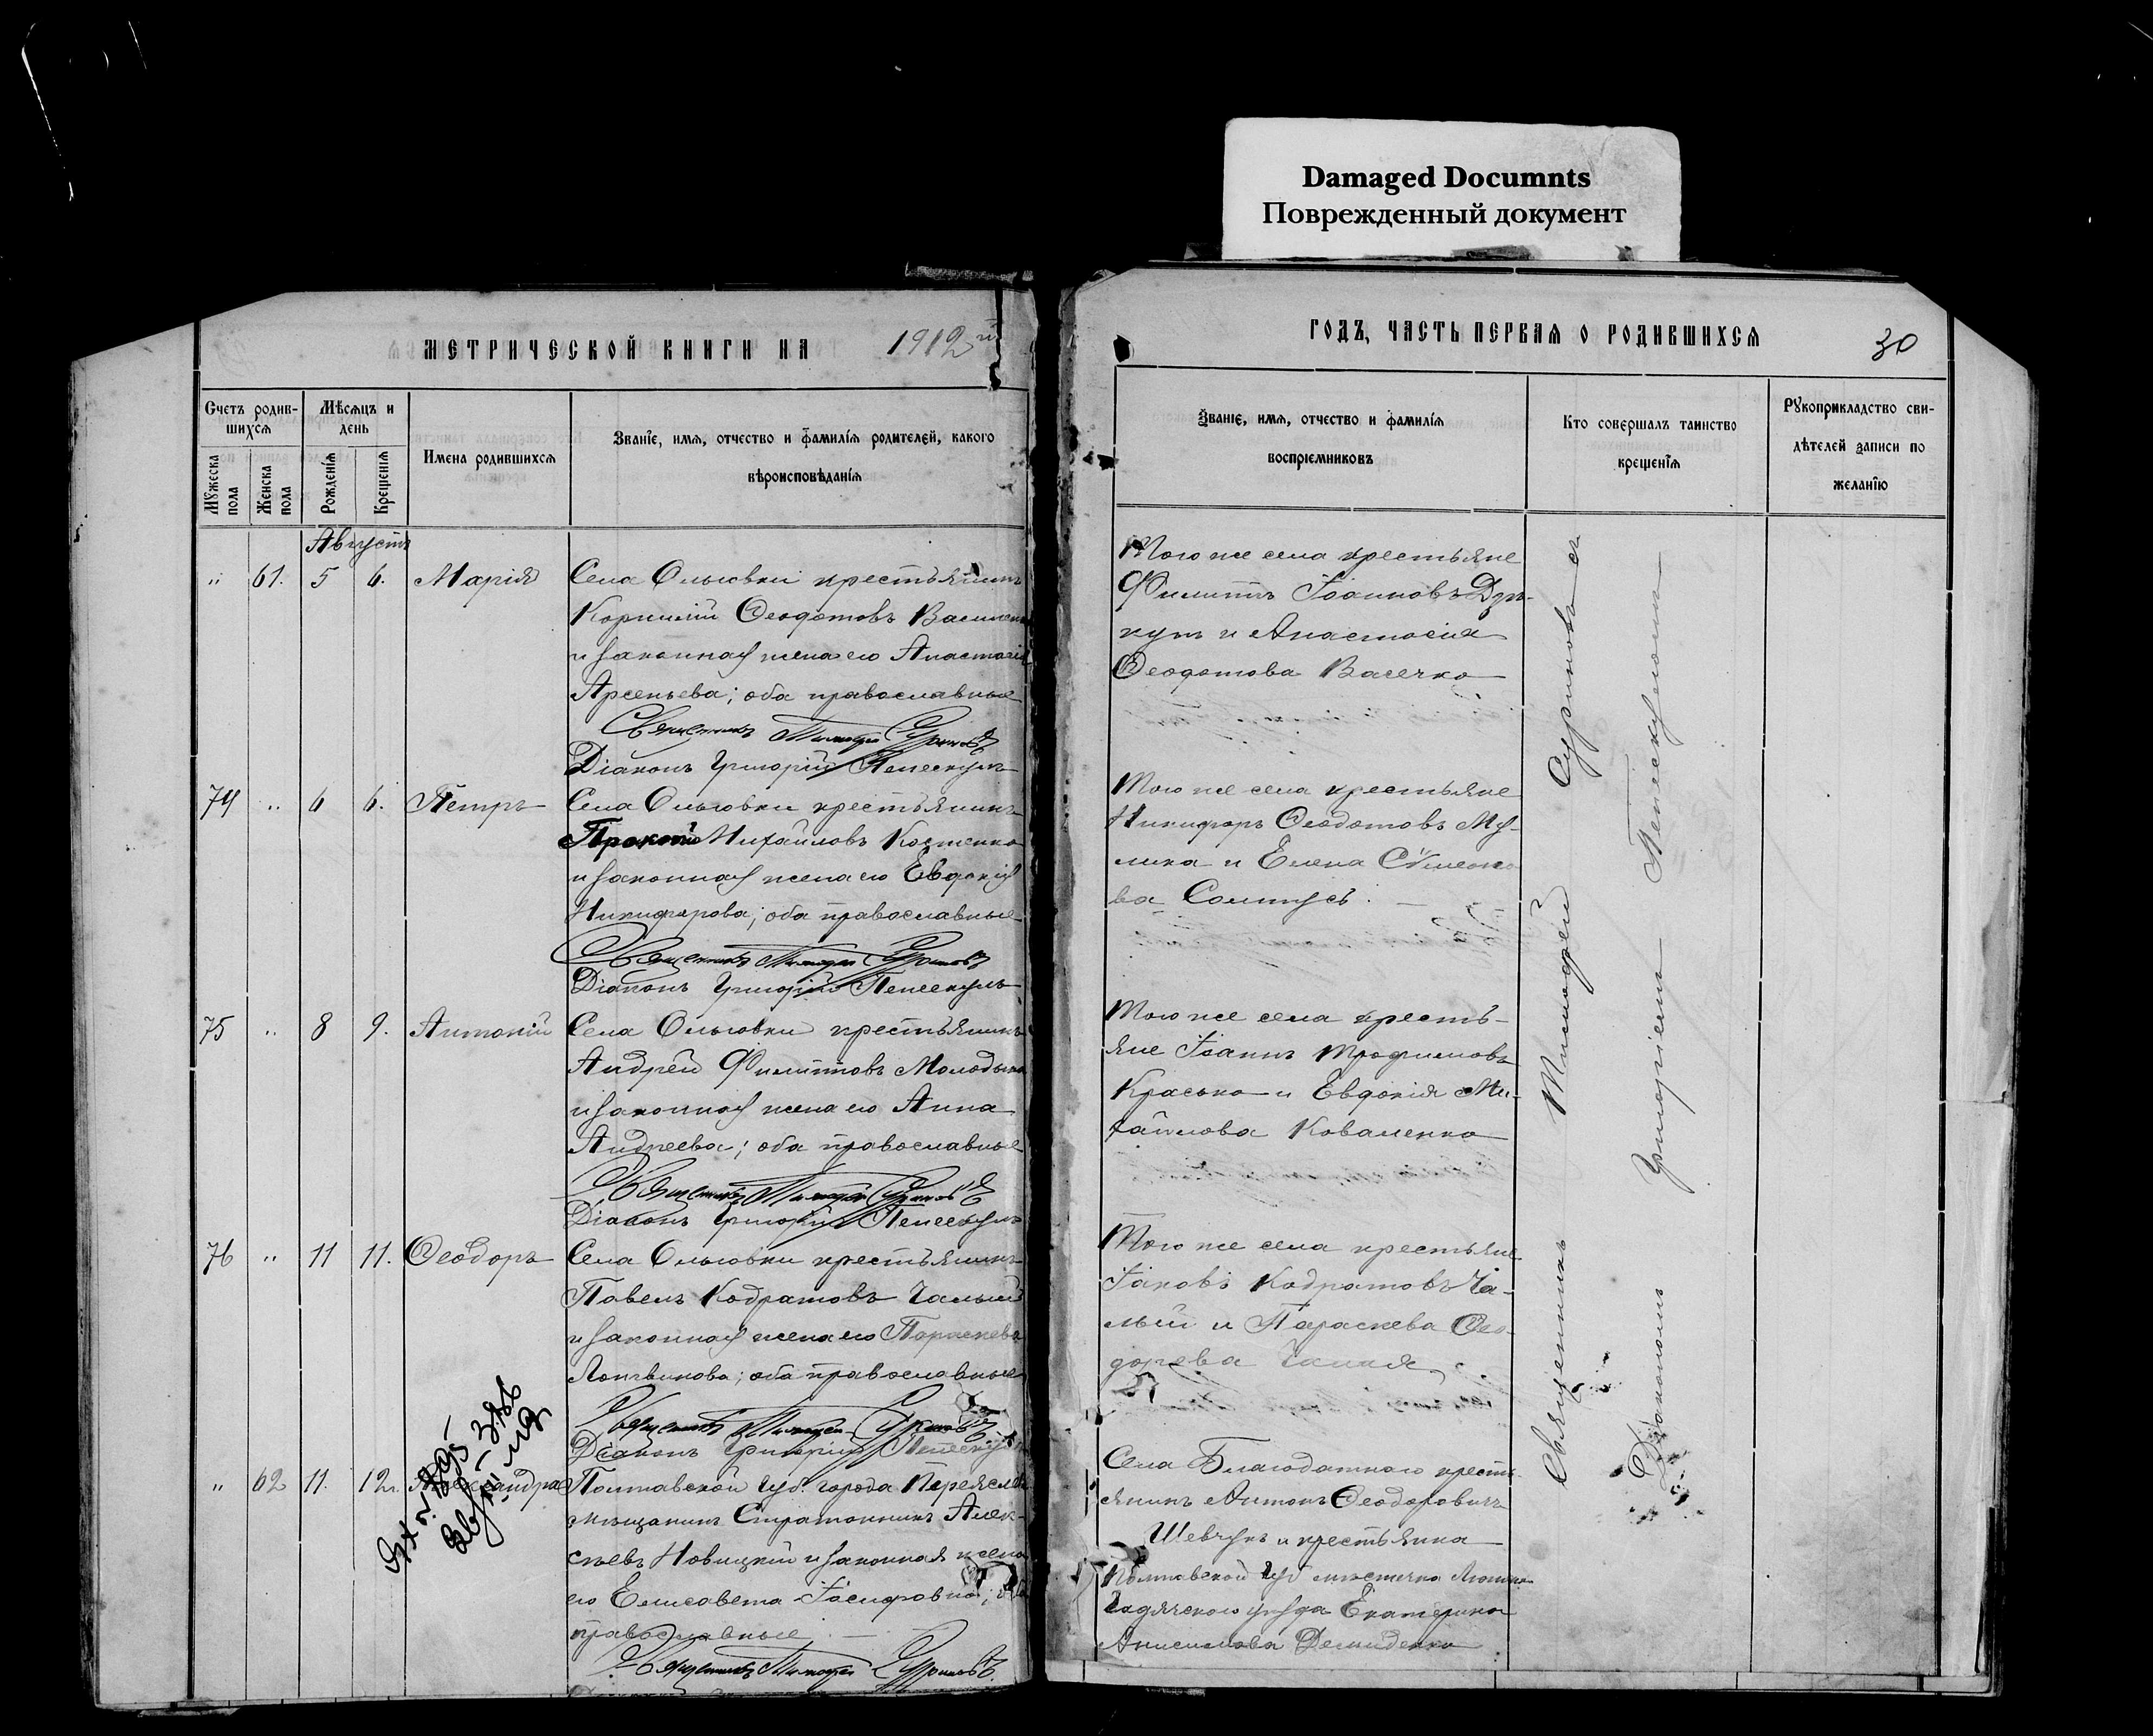 Damaged Documnts
Поврежденный документ
МЕТРИЧЕСКОЙ КНИГИ НА 1912й
ГОДЪ, ЧАСТЬ ПЕРВАЯ О РОДИВШИХСЯ 30
Счетъ родив-
шихся
Мужеска пола
Женска пола
Мѣсяцъ и
день
Рожденія
Крещенія
Имена родившихся
Званіе, имя, отчество и фамилія родителей, какого
вѣроисповѣданія
Званіе, имя, отчество и фамилія
воспріемниковъ
Кто совершалъ таинство
крещенія
Рукоприкладство сви-
дѣтелей записи по
желанію
Августъ
" 61. 5 6. Марія Села Ольговки крестьянинъ
Корнилій Ѳеодотовъ
и законная жена его Анастасія
Арсеньева; оба православные
Священникъ Тимофей Суриновъ
Діаконъ Григорій
Того же села крестьяне
Филиппъ Іоанновъ
и Анастасія
Ѳеодотова Васечко
74 " 6 6. Петръ Села Ольговки крестьянинъ
Прокопій Михайловъ Костенко
и законная жена его Евдокія
Никифорова; оба православные
Священникъ Тимофей Суриновъ
Діаконъ Григорій
Того же села крестьяне
Никифоръ Ѳеодотовъ Му-
лика и Елена Сѵмеоно-
ва
75 " 8 9. Антоній Села Ольговки крестьянинъ
Андрей Филипповъ
и законная жена его Анна
Андреева; оба православные
Священникъ Тимофей Суриновъ
Діаконъ Григорій
Того же села кресть-
яне Іоаннъ Трофимовъ
Красько и Евдокія Ми-
хайлова Коваленко
76 " 11 11. Ѳеодоръ Села Ольговки крестьянинъ
Павелъ Кодратовъ Чалый
и законная жена его Параскева
Логвинова; оба православные
Священникъ Тимофей Суриновъ
Діаконъ Григорій
Того же села крестьяне
Іаковъ Кодратовъ Ча-
лый и Параскева Ѳео-
дорова Чалая
" 62 11. 12. Александра Полтавской губ. города Переяслава
мѣщанинъ Стратоникъ Алек-
сѣевъ Новицкій и законная жена
его Елисавета Іосифовна; оба
православные
Священникъ Тимофей Суриновъ
Села Благодатнаго кресть-
янинъ Антонъ Ѳеодоровичъ
Шевчукъ и крестьянка
Полтавской губ мѣстечка
Гадячскаго уѣзда Екатерина
Анисимова Демиденко
Священникъ Тимофей Суриновъ съ
Діакономъ Григоріемъ